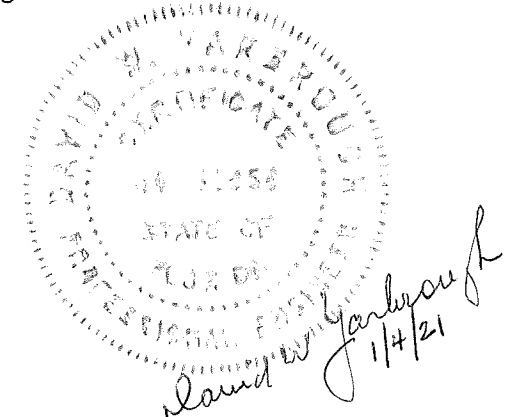 DAVID W. YARBROUGH
CERTIFICATE
STATE OF
PROFESSIONAL ENGINEER
David W Yarbrough
1/4/21